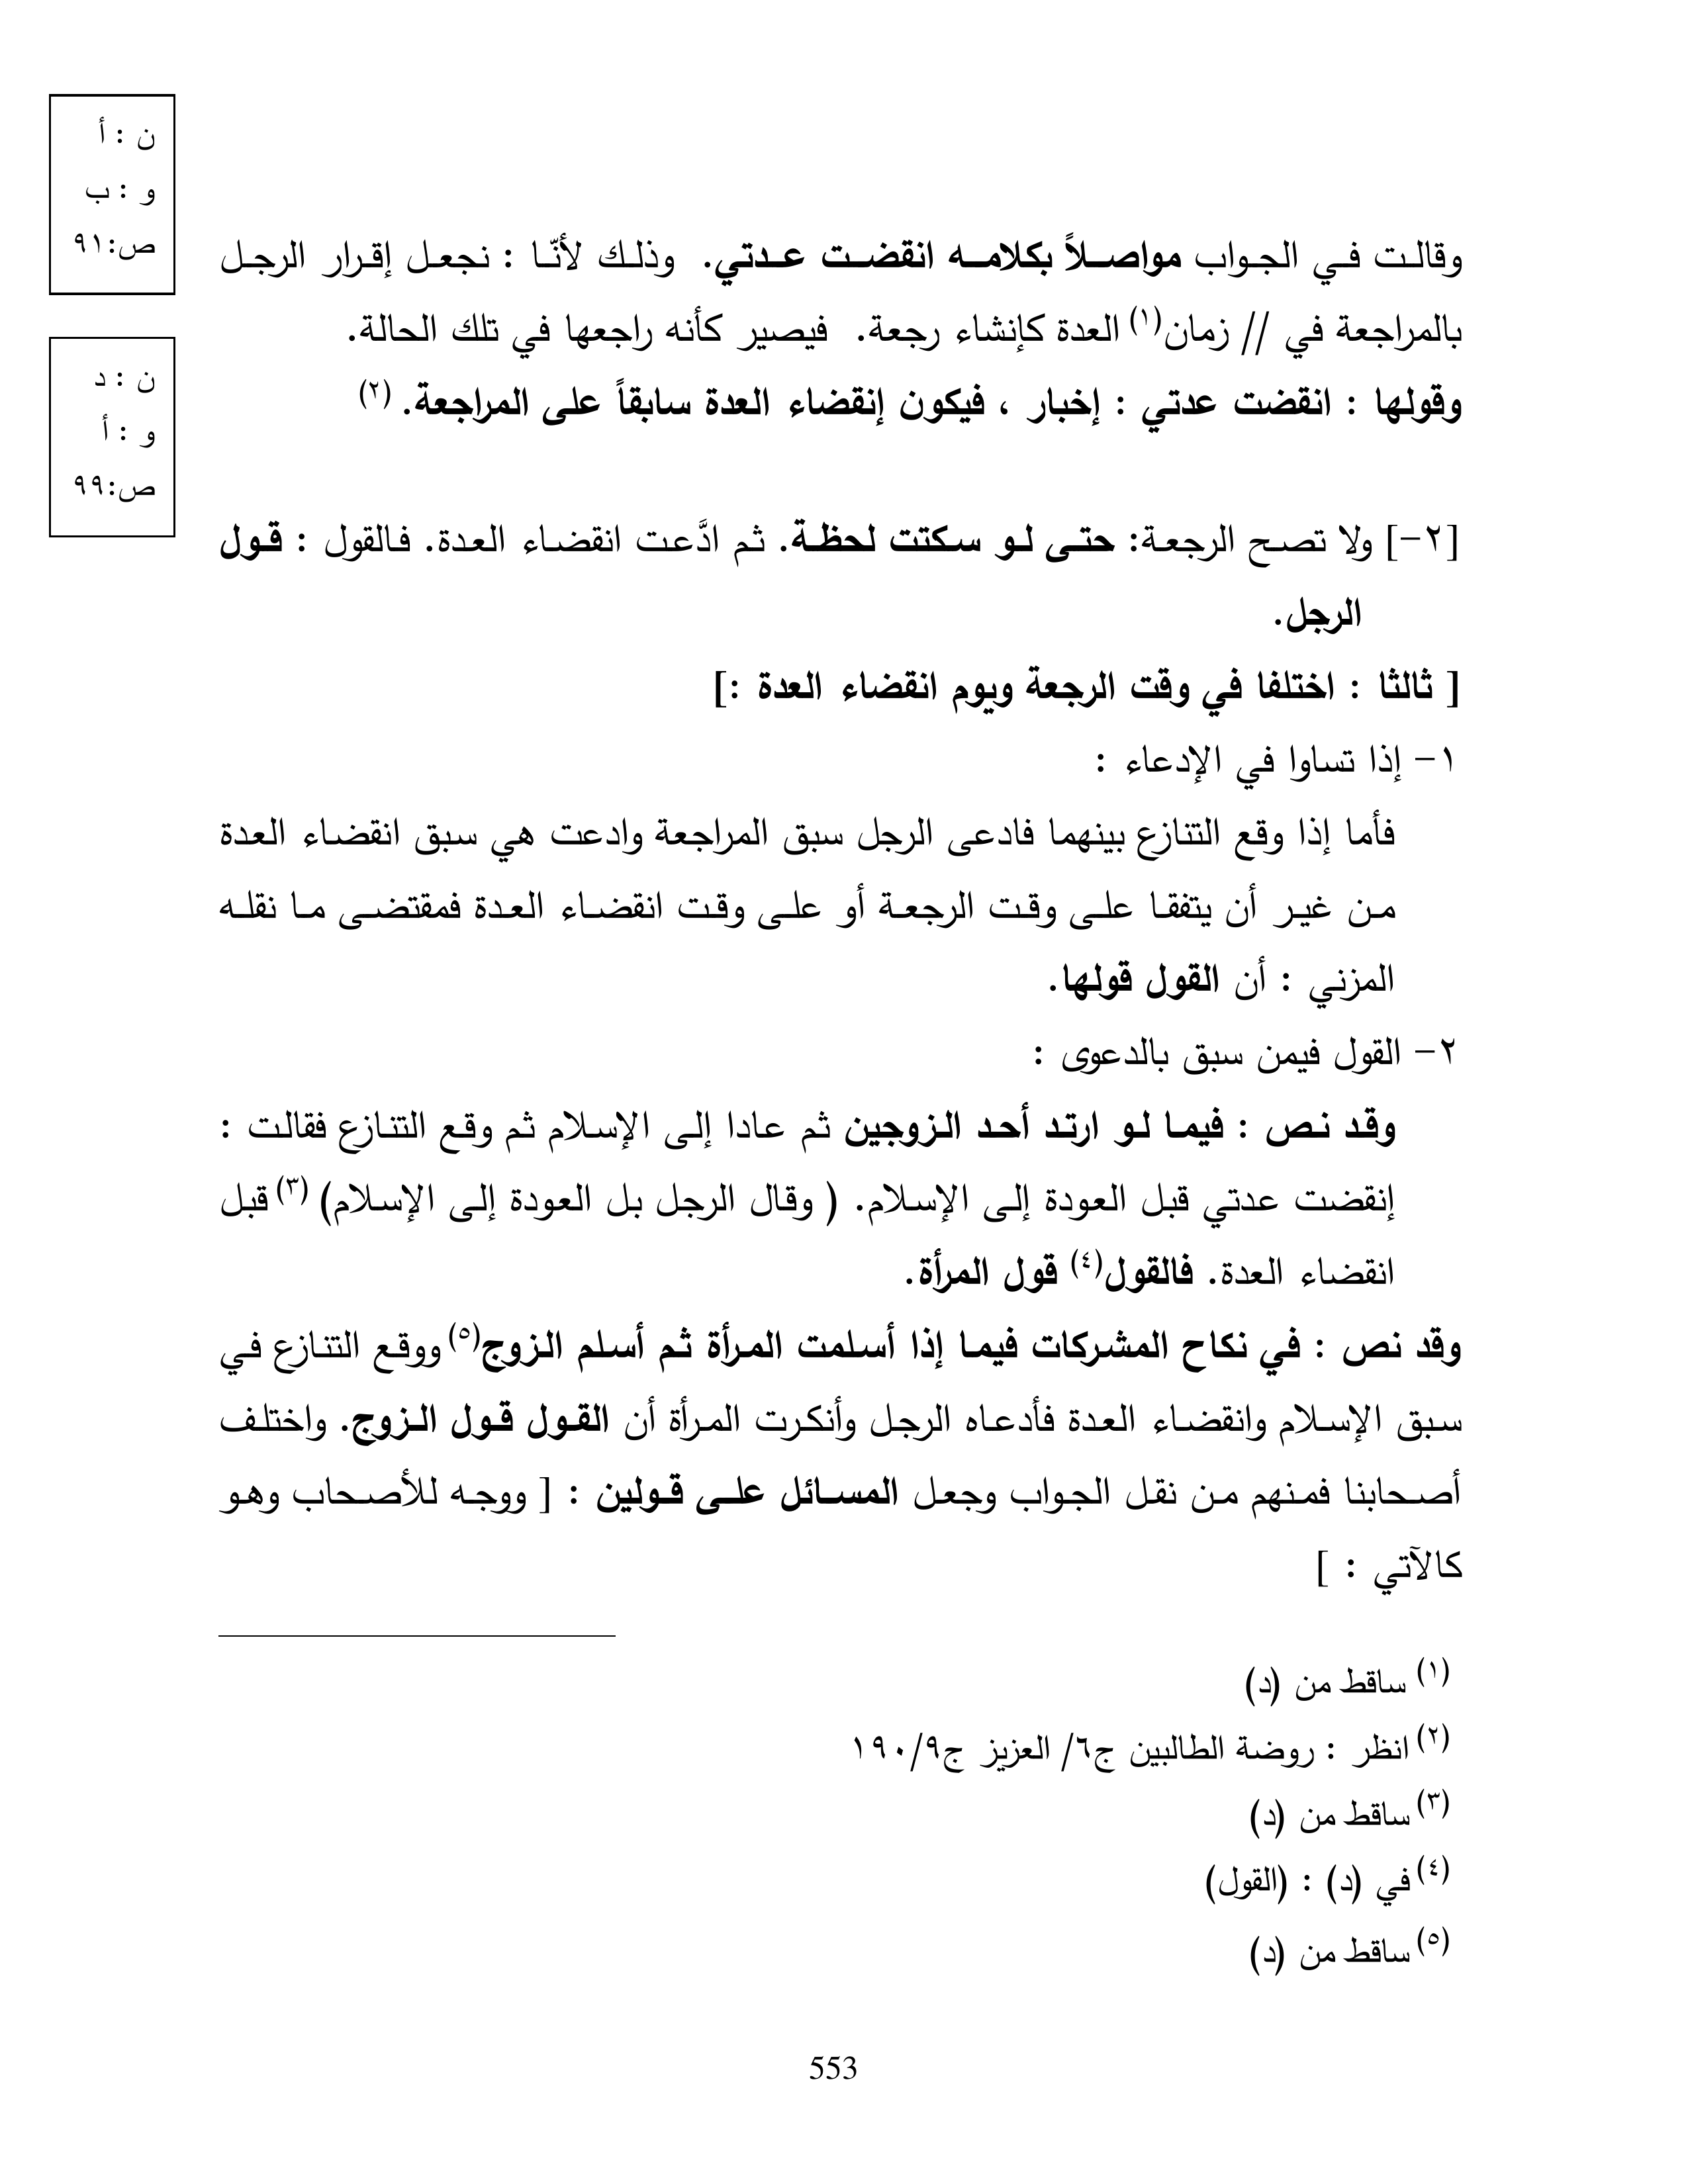 ن : أ
و : ب
ص:٩١
ن : د
و : أ
ص:٩٩
وقالت في الجواب مواصلاً بكلامه انقضت عدتي. وذلك لأنّا : نجعل إقرار الرجل
بالمراجعة في // زمان(١) العدة كإنشاء رجعة. فيصير كأنه راجعها في تلك الحالة.
وقولها : انقضت عدتي : إخبار ، فيكون إنقضاء العدة سابقاً على المراجعة. (٢)
[٢-] ولا تصح الرجعة: حتى لو سكتت لحظة. ثم ادَّعت انقضاء العدة. فالقول : قول
الرجل.
[ ثالثا : اختلفا في وقت الرجعة ويوم انقضاء العدة :]
١- إذا تساوا في الإدعاء :
فأما إذا وقع التنازع بينهما فادعى الرجل سبق المراجعة وادعت هي سبق انقضاء العدة
من غير أن يتفقا على وقت الرجعة أو على وقت انقضاء العدة فمقتضى ما نقله
المزني : أن القول قولها.
٢- القول فيمن سبق بالدعوى :
وقد نص : فيما لو ارتد أحد الزوجين ثم عادا إلى الإسلام ثم وقع التنازع فقالت :
إنقضت عدتي قبل العودة إلى الإسلام. ( وقال الرجل بل العودة إلى الإسلام) (٣) قبل
انقضاء العدة. فالقول(٤) قول المرأة.
وقد نص : في نكاح المشركات فيما إذا أسلمت المرأة ثم أسلم الزوج(٥) ووقع التنازع في
سبق الإسلام وانقضاء العدة فأدعاه الرجل وأنكرت المرأة أن القول قول الزوج. واختلف
أصحابنا فمنهم من نقل الجواب وجعل المسائل على قولين : [ ووجه للأصحاب وهو
كالآتي : ]
(١) ساقط من (د)
(٢) انظر : روضة الطالبين ج٦/ العزيز ج٩/١٩٠
(٣) ساقط من (د)
(٤) في (د) : (القول)
(٥) ساقط من (د)
553